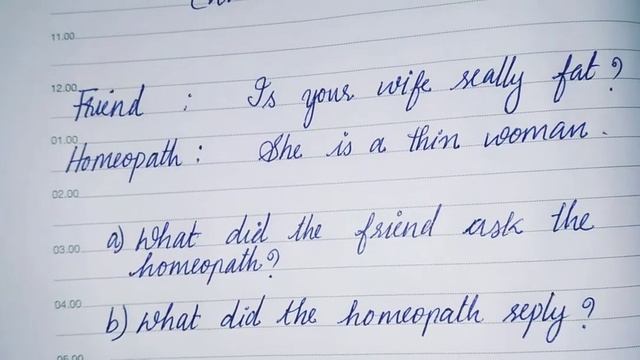 11.00
12.00
Friend : Is your wife really fat?
01.00
Homeopath : She is a thin woman.
02.00
a) What did the friend ask the
03.00
homeopath?
04.00
b) What did the homeopath reply?
05.00